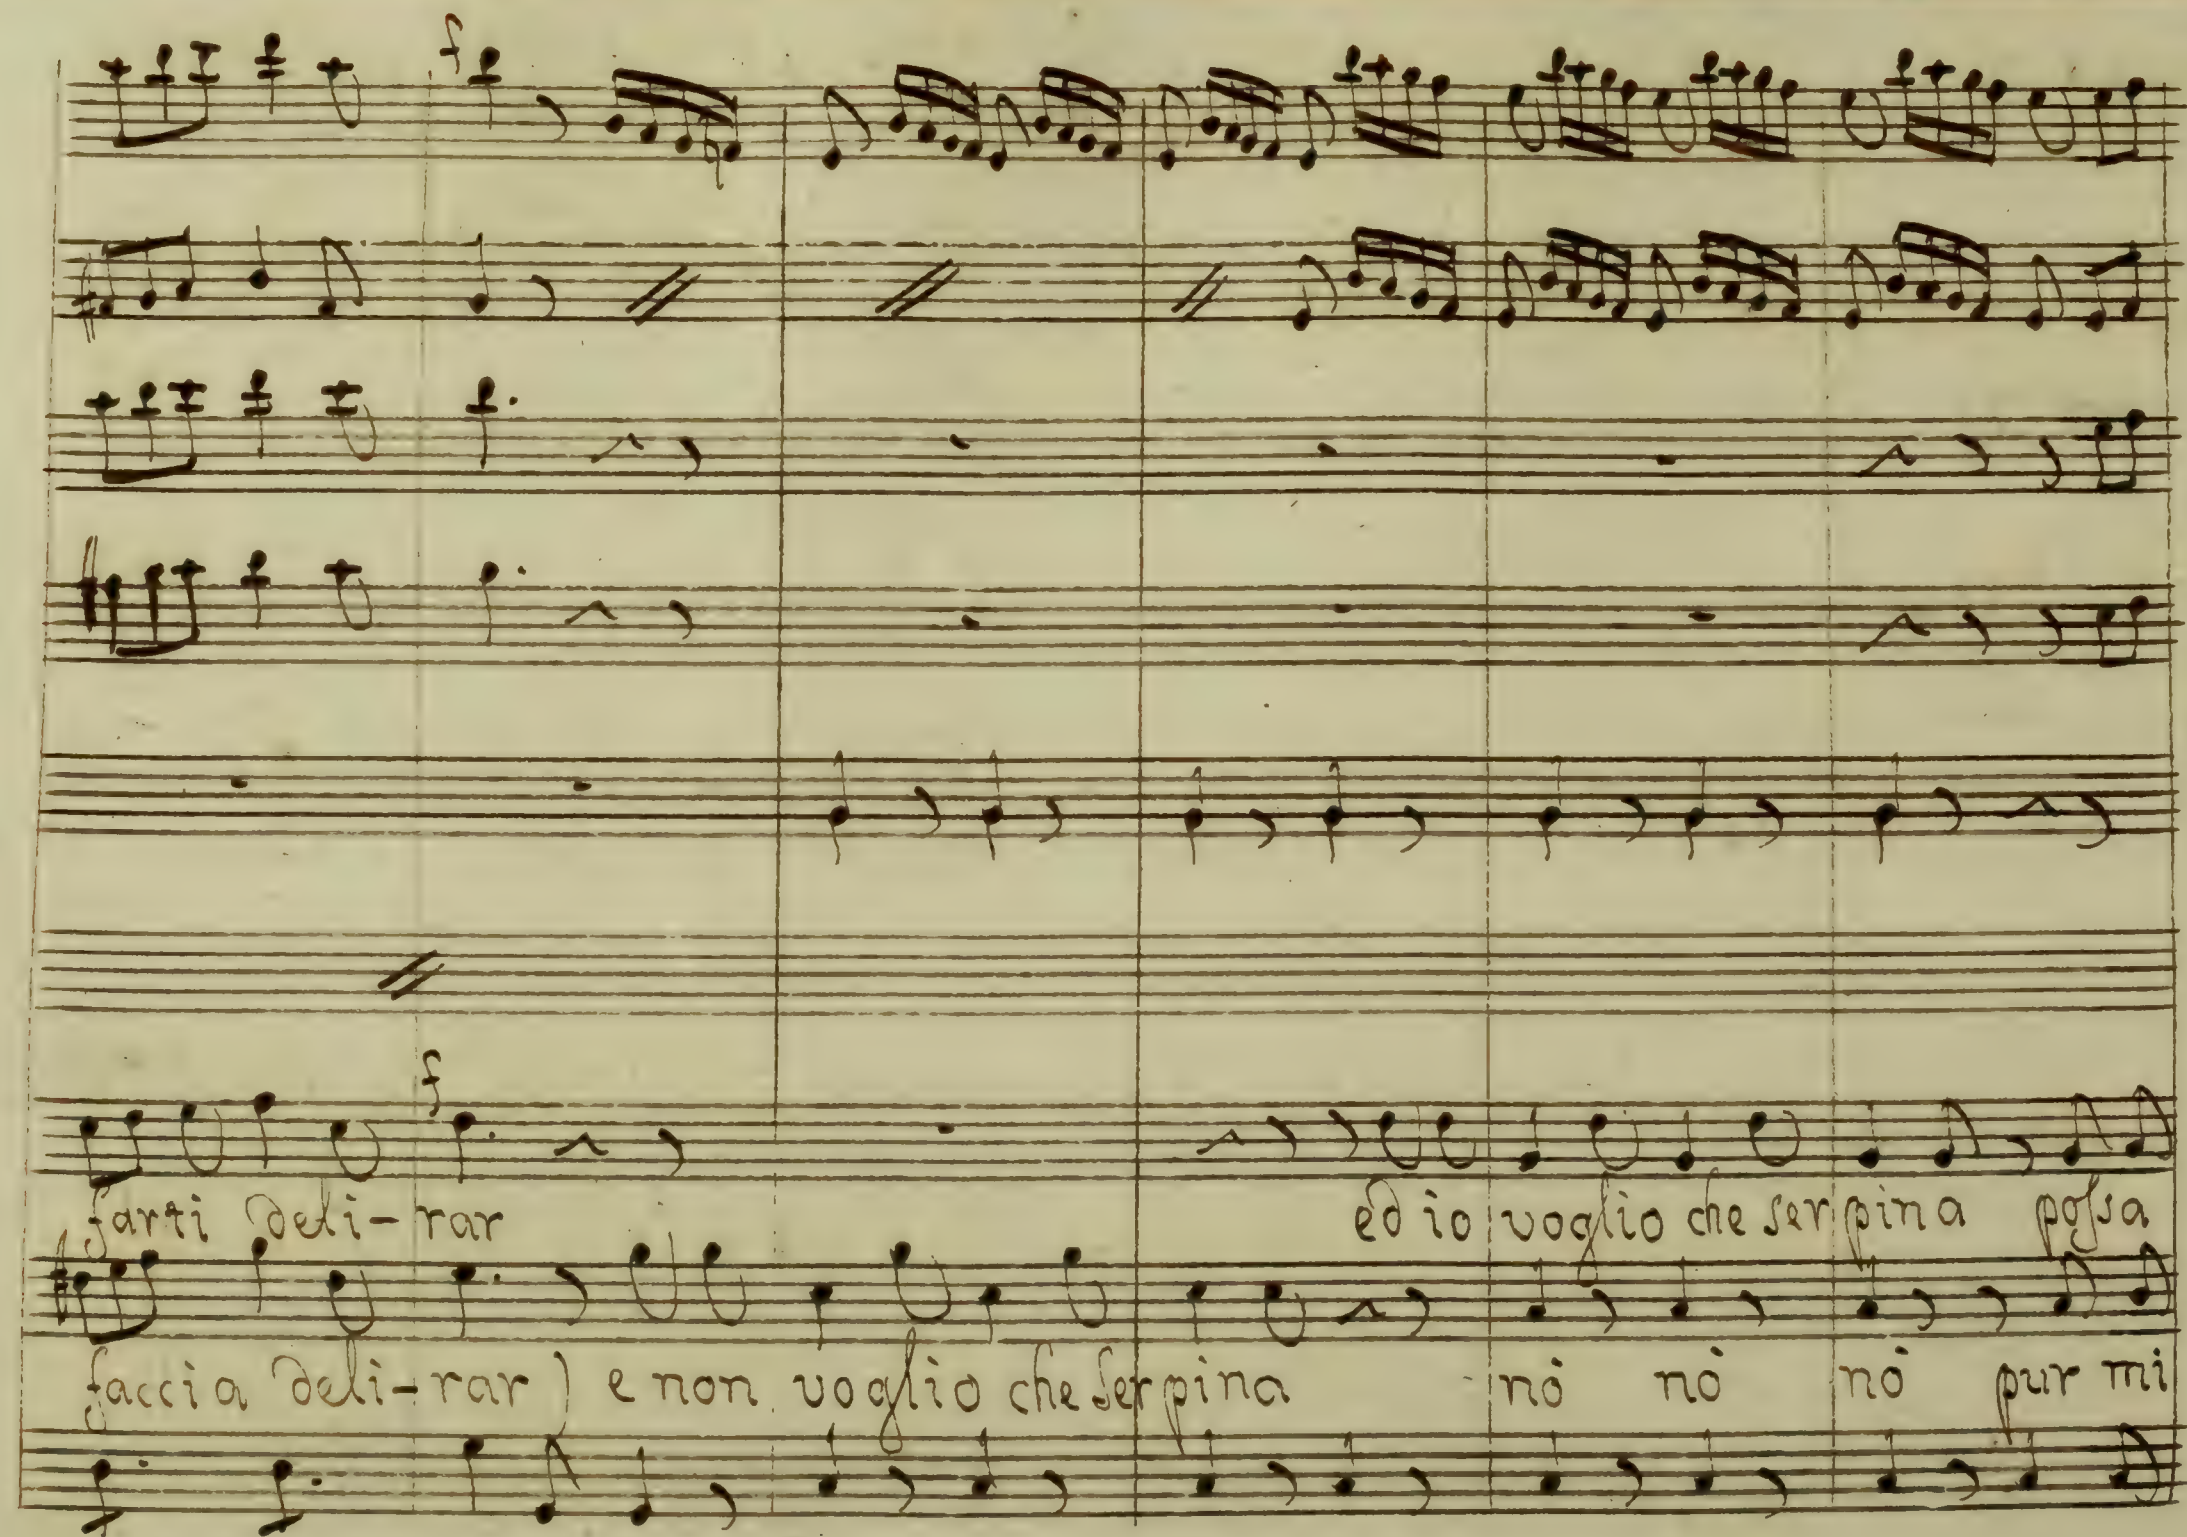 f
f
farti deli-rar ed io voglio che serpina possa
faccia deli-rar) e non voglio che serpina nò nò nò pur mi